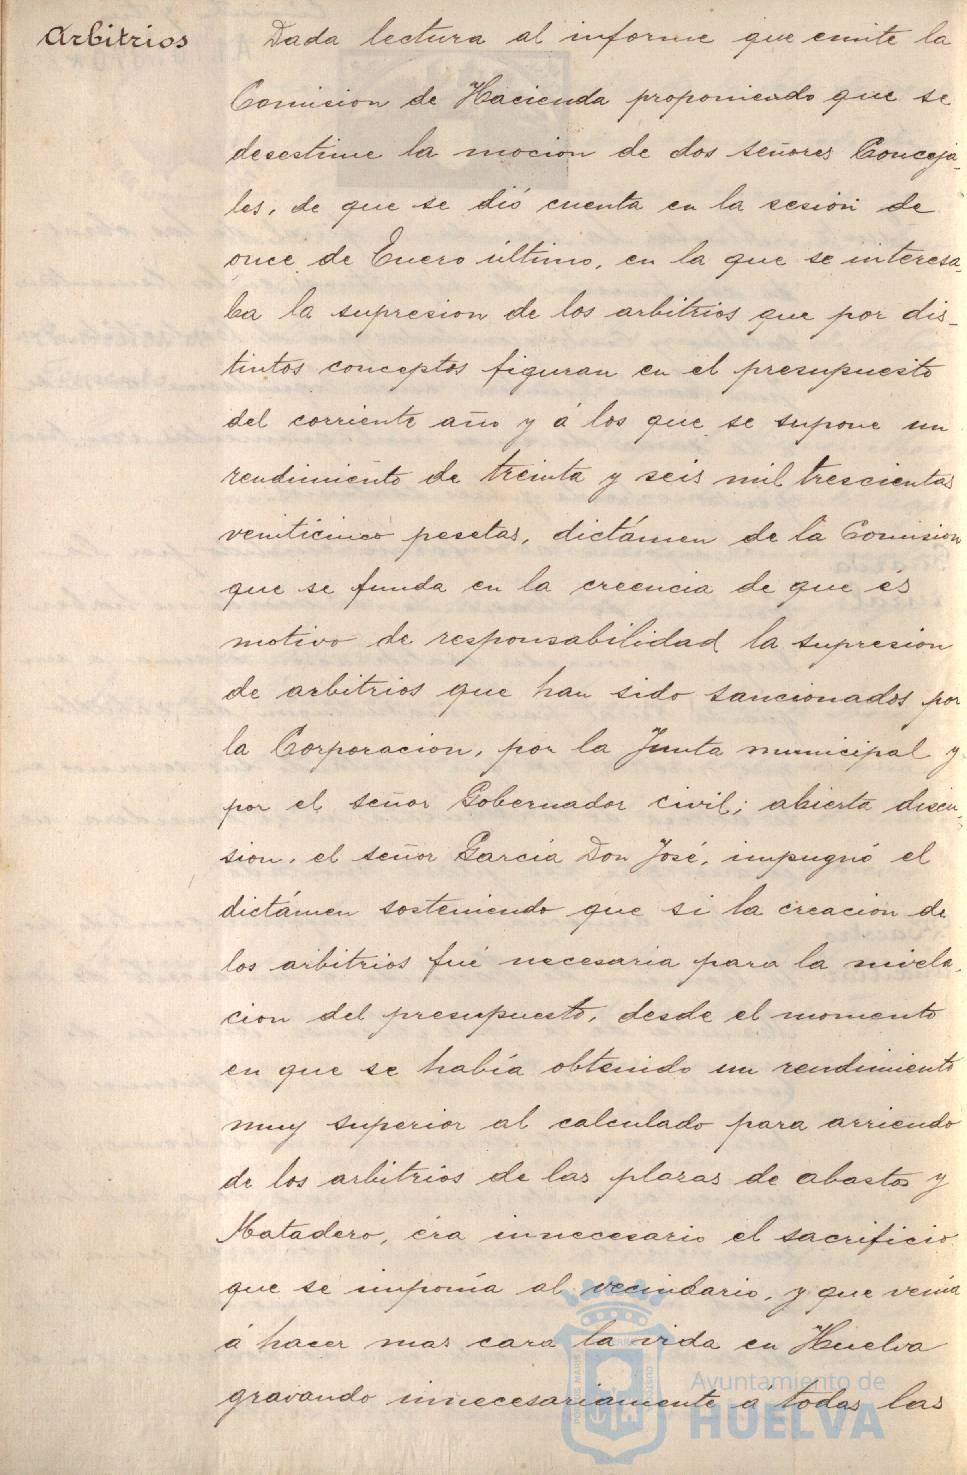 Arbitrios
Dada lectura al informe que emite la
Comision de Hacienda proponiendo que se
desestime la mocion de dos señores Conceja-
les, de que se dió cuenta en la sesion de
once de Enero último, en la que se interesa-
ba la supresion de los arbitrios que por dis-
tintos conceptos figuran en el presupuesto
del corriente año y á los que se supone un
rendimiento de treinta y seis mil trescientas
veinticinco pesetas, dictámen de la Comision
que se funda en la creencia de que és
motivo de responsabilidad la supresion
de arbitrios que han sido sancionados por
la Corporacion, por la Junta municipal y
por el señor Gobernador civil; abierta discu-
sion, el señor Garcia Don José, impugnó el
dictámen sosteniendo que si la creacion de
los arbitrios fué necesaria para la nivela-
cion del presupuesto, desde el momento
en que se había obtenido un rendimiento
muy superior al calculado para arriendo
de los arbitrios de las plazas de abastos y
Matadero, éra innecesario el sacrificio
que se imponía al vecindario, y que venía
á hacer mas cara la vida en Huelva
gravando innecesariamente á todas las
Ayuntamiento de
HUELVA